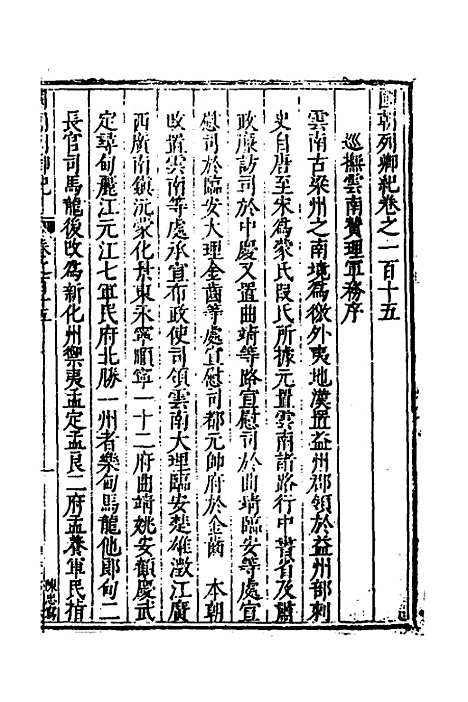 國朝列卿紀卷之一百十五
巡撫雲南贊理軍務序
雲南古梁州之南境為徼外夷地漢置益州郡領於益州部刺
史自唐至宋為蒙氏段氏所據元置雲南諸路行中書省及肅
政廉訪司於中慶又置曲靖等路宣慰司於曲靖臨安等處宣
慰司於臨安大理金齒等處宣慰司都元帥府於金齒　本朝
改置雲南等處承宣布政使司領雲南大理臨安楚雄澂江廣
西廣南鎮沅蒙化井東永寧順寧一十二府曲靖姚安鶴慶武
定尋甸麗江元江七軍民府北勝一州者樂甸馬龍他郎甸二
長官司馬龍後改為新化州禦夷孟定孟艮二府孟養軍民指